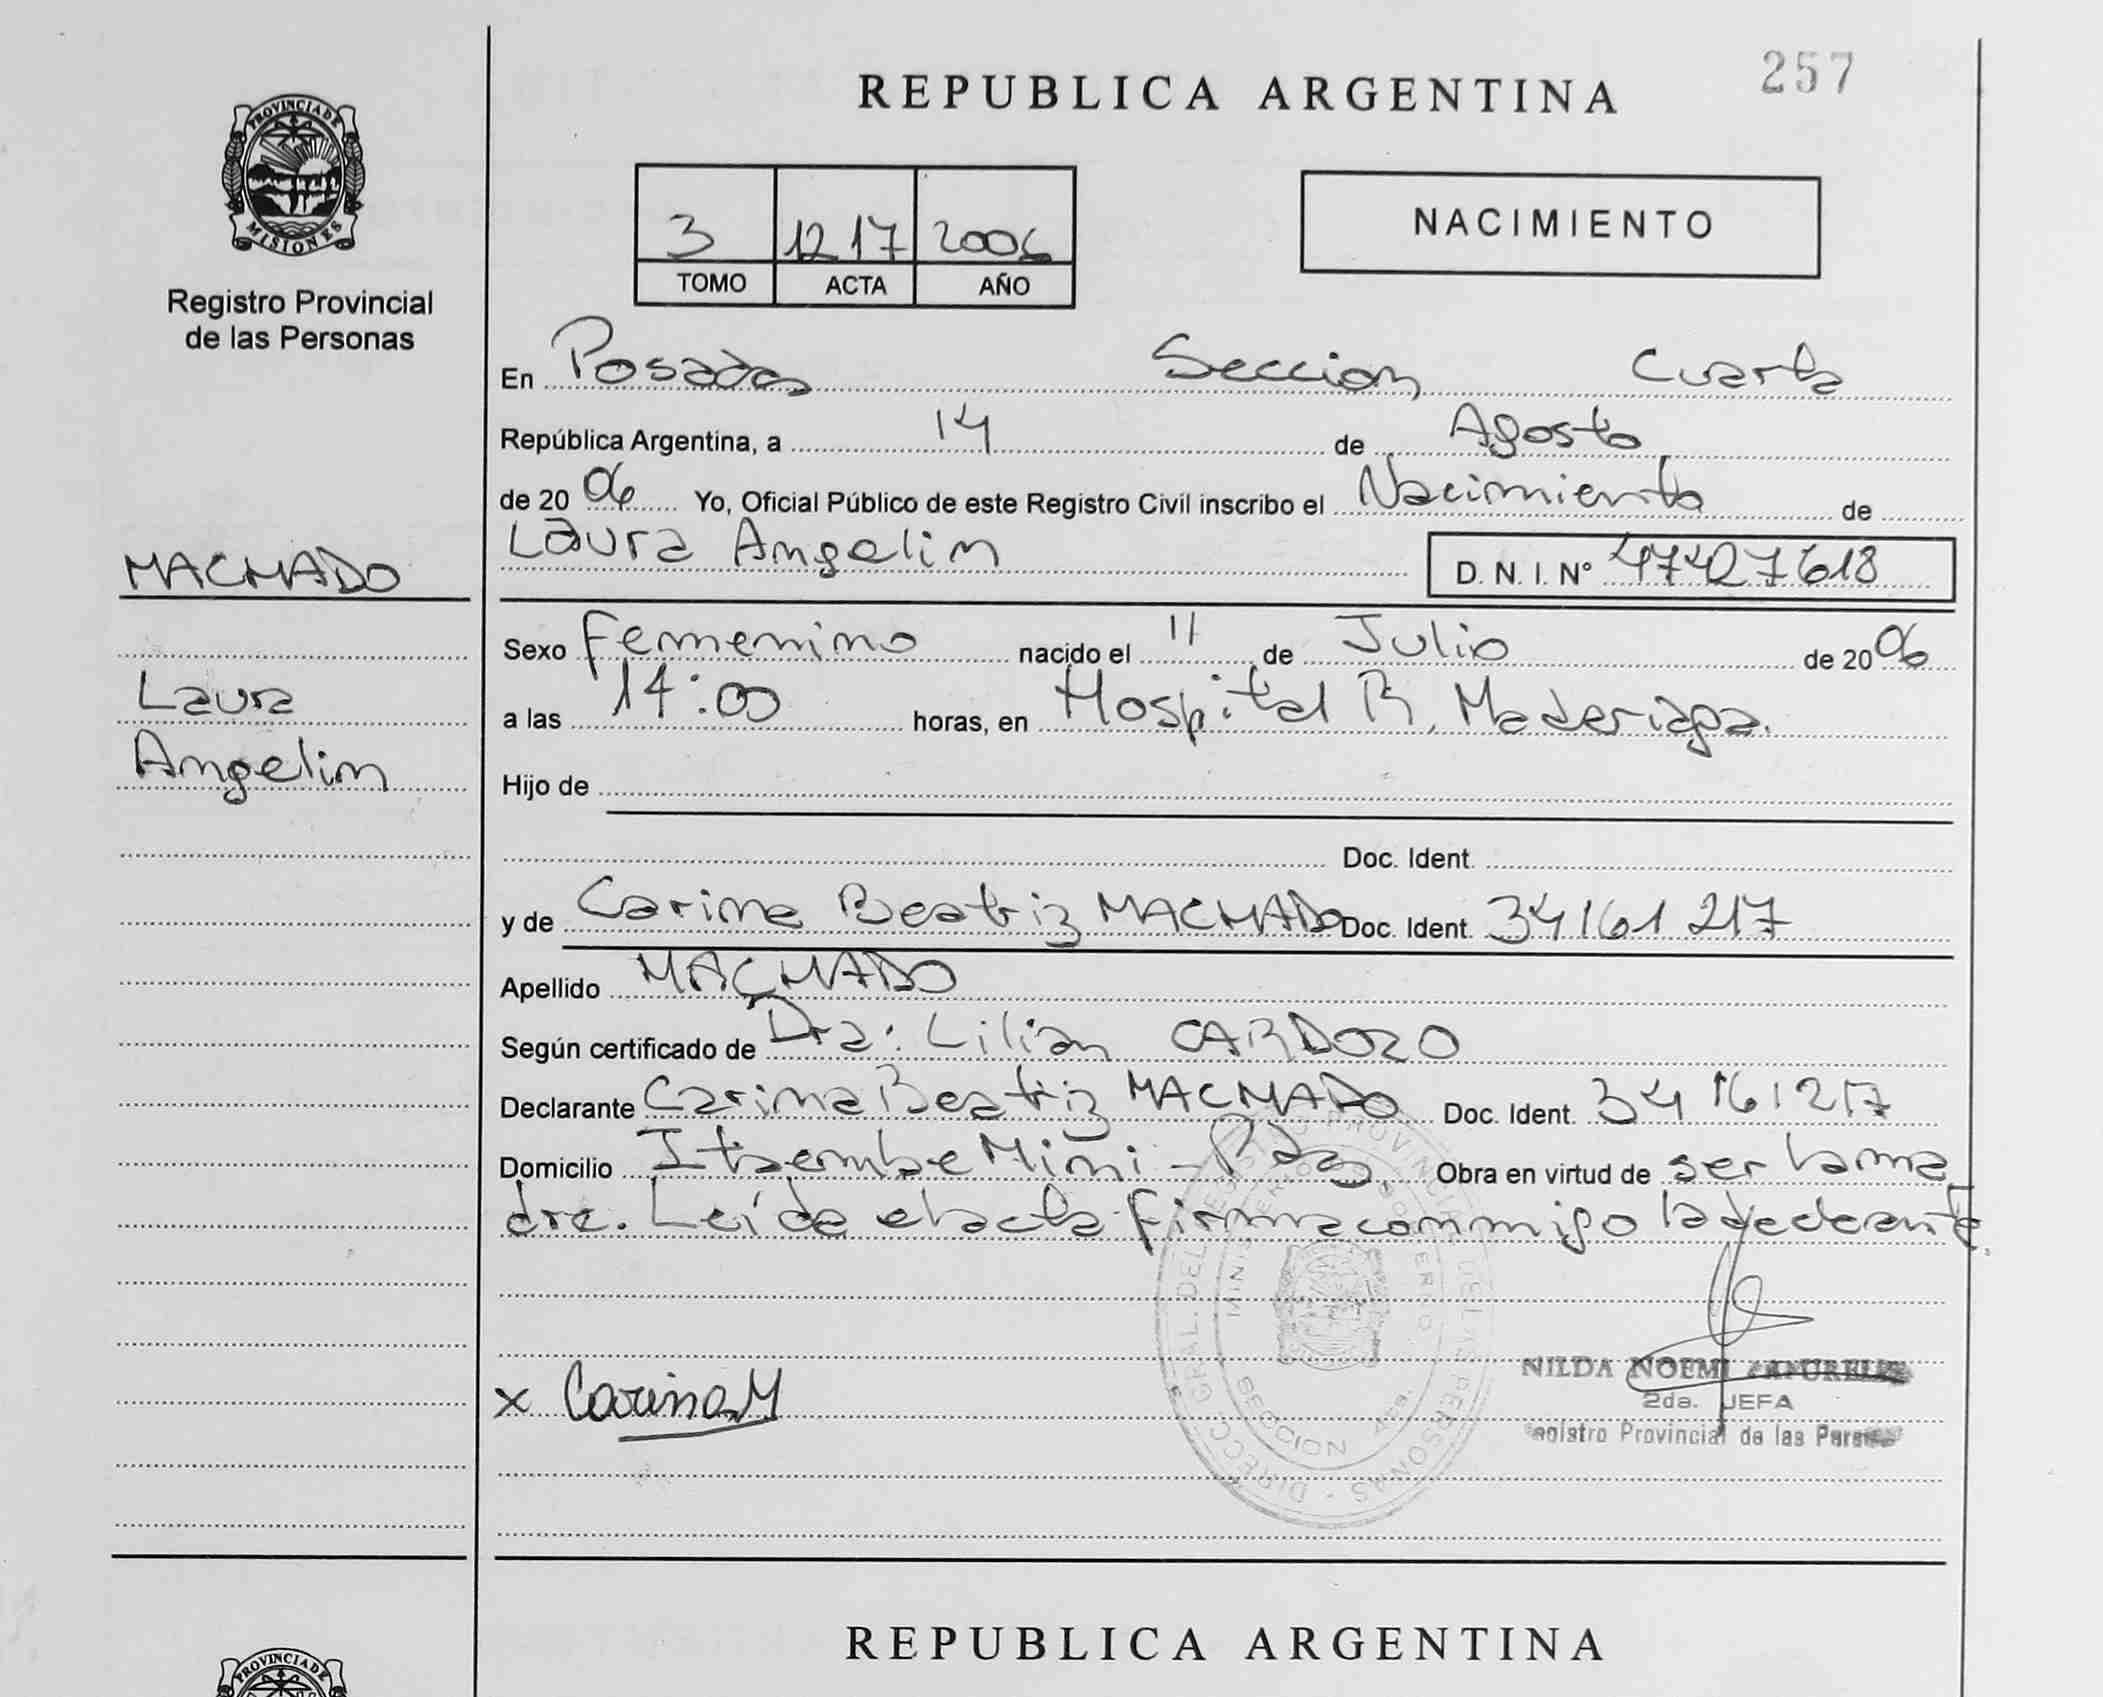 257
REPUBLICA ARGENTINA
PROVINCIA DE
MISIONES
Registro Provincial
de las Personas
3 1217 2006
TOMO ACTA AÑO
NACIMIENTO
En Posadas Seccion Cuarta
República Argentina, a 14 de Agosto
de 20 06 Yo, Oficial Público de este Registro Civil inscribo el Nacimiento de
Laura Angelin D. N. I. Nº 47427618
MACHADO
Laura
Angelin
Sexo Femenino nacido el 11 de Julio de 20 06
a las 14:00 horas, en Hospital R. Maderiaga.
Hijo de
Doc. Ident.
y de Carina Beatriz MACHADO Doc. Ident. 34161217
Apellido MACHADO
Según certificado de Dra: Lilian CARDOZO
Declarante Carina Beatriz MACHADO Doc. Ident. 34161217
Domicilio Itaembe Mini - Pdas. Obra en virtud de ser la ma
dre. Leída el acta firma conmigo la
DIRECC. GRAL. DEL REGISTRO PROVINCIAL DE LAS PERSONAS
MINISTERIO DE GOBIERNO
SECCION 4ta.
x Carina M
NILDA NOEMI
2da. JEFA
Registro Provincial de las Personas
REPUBLICA ARGENTINA
PROVINCIA DE